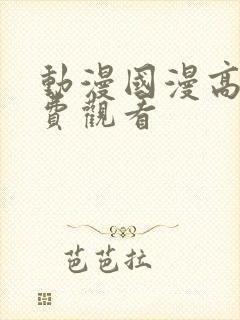 動漫國漫高
費觀看
芭芭拉